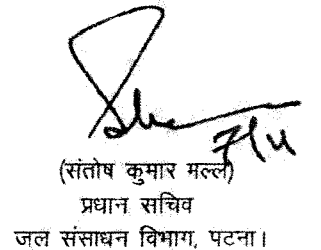 7/11
(संतोष कुमार मल्ल)
प्रधान सचिव
जल संसाधन विभाग, पटना।